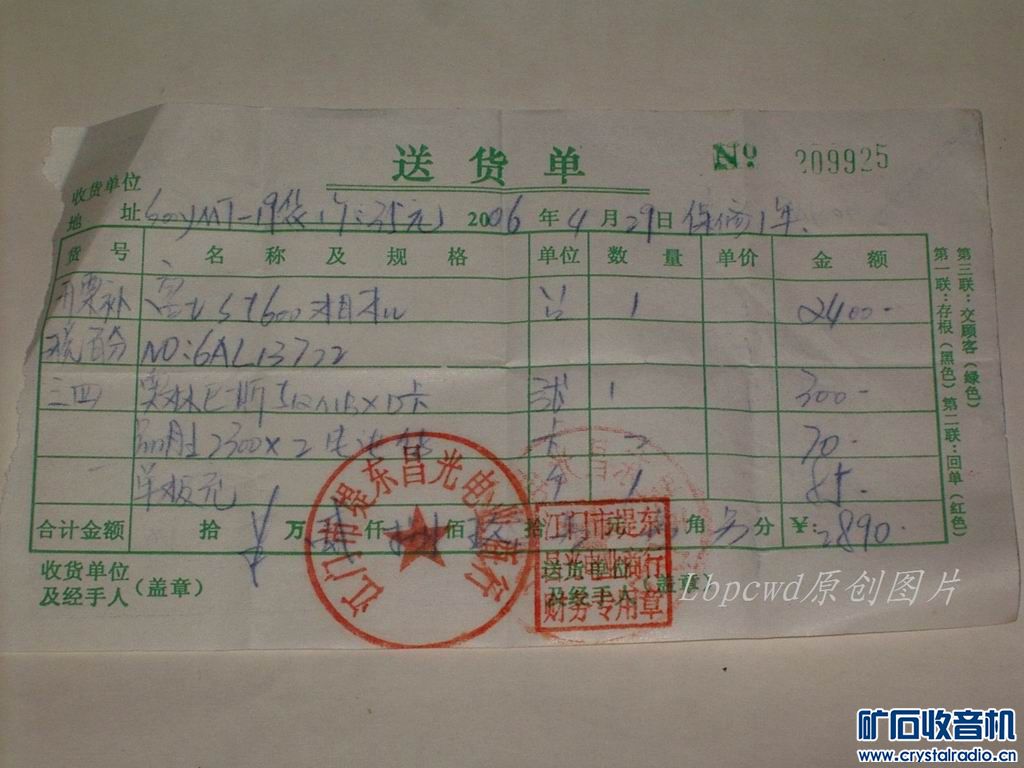 送货单
№ 209925
收货单位
地址
2006年4月29日 保修1年
货号 名称及规格 单位 数量 单价 金额
开票补 富士 S5600相机 台 1 2400-
税百分 NO:6AL13722
三四 奥林巴斯 512MB XD卡 张 1 300-
2300×2 2 70-
单 1
合计金额 拾 万 仟 佰 拾 元 角 分 ¥:2890-
收货单位
及经手人(盖章)
送货单位
及经手人(盖章)
第一联:存根(黑色) 第二联:回单(红色)
第三联:交顾客(绿色)
江门市堤东昌光电业商行
江门市堤东
昌光电业商行
财务专用章
Lbpcwd原创图片
矿石收音机
www.crystalradio.cn